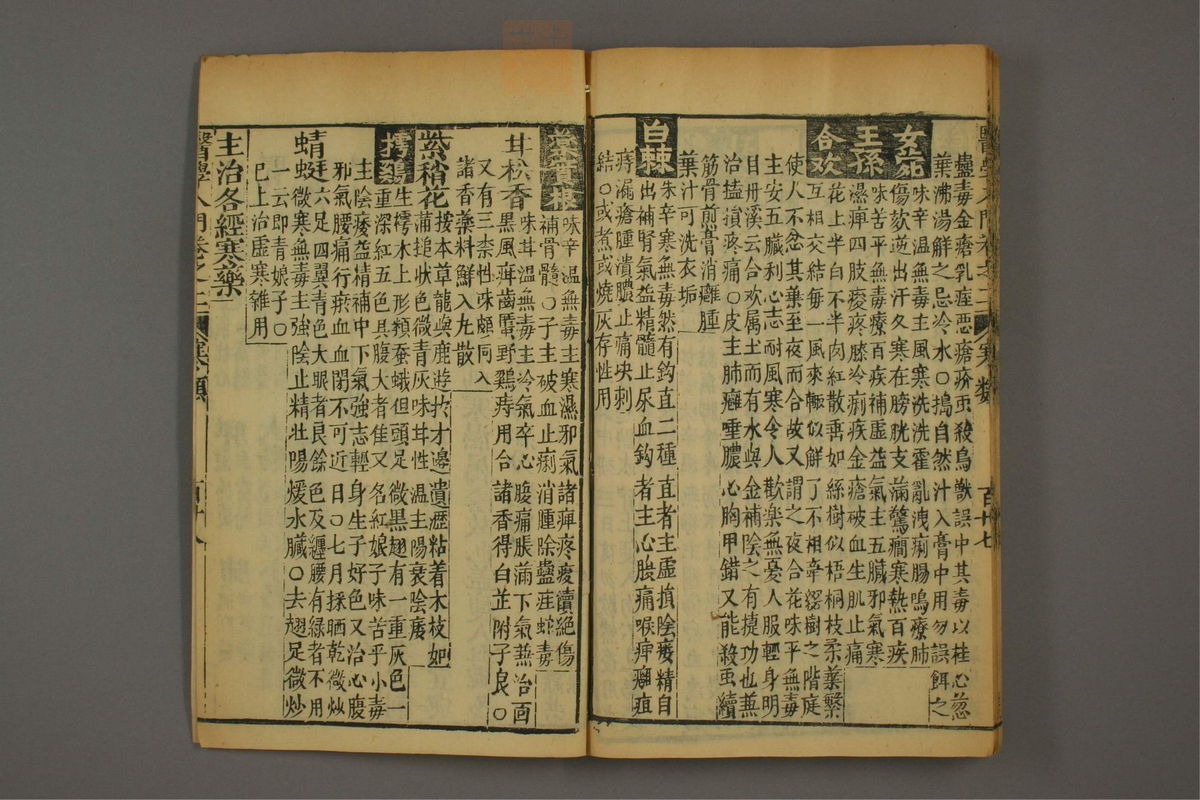 醫學入門卷之二 寒類 百十七
蠱毒金瘡乳痓惡瘡疥虱殺鳥獸誤中其毒以桂心葱
葉沸湯解之忌冷水○搗自然汁入膏中用勿誤餌之
女菀
味辛溫無毒主風寒洗洗霍亂洩痢腸鳴療肺
傷欬逆出汗久寒在膀胱支滿驚癇寒熱百疾
王孫
味苦平無毒療百疾補虛益氣主五臟邪氣寒
濕痺四肢痠疼膝冷痢疾金瘡破血生肌止痛
合欢
花上半白下半肉紅散垂如絲樹似梧桐枝柔葉繁
互相交結每一風來輒似解了不相牽綴樹之階庭
使人不忿其葉至夜而合故又謂之夜合花味平無毒
主安五臟利心志耐風寒令人歡樂無憂久服輕身明
目丹溪云合欢属土而有水與金補陰之有捷功也兼
治搕損疼痛○皮主肺癰唾膿心胸甲錯又能殺虫續
筋骨煎膏消癰腫
葉汁可洗衣垢
白棘
味辛寒無毒然有鈎直二種直者主虛損陰痿精自
出補腎氣益精髓止尿血鈎者主心脹痛喉痺瘤疽
痔漏瘡腫潰膿止痛块刺
結○或煮或燒灰存性用
味辛溫無毒主寒濕邪氣諸痺疼痠續絕傷
補骨髓○子主破血止痢消腫除蠱疰蛇毒
甘松香
味甘溫無毒主冷氣卒心腹痛脹滿下氣兼治面
黑風疳齒䘌野鷄痔用合諸香得白芷附子良○
又有三柰性味頗同入
諸香藥料鮮入丸散
紫稍花
按本草龍與鹿遊於才邊遺瀝粘着木枝如
蒲搥状色微青灰味甘性溫主陽衰陰痿
樗鷄
生樗木上形類蚕蛾但頭足微黑翅有一重灰色一
重深紅五色具腹大者佳又名紅娘子味苦平小毒
主陰痿益精補中下氣強志輕身生子好色又治心腹
邪氣腰痛行瘀血血閉不可近目○七月採晒乾微炒
蜻蜓
六足四翼青色大眼者良餘色及纏腰有綠者不用
微寒無毒主強陰止精壯陽煖水臟○去翅足微炒
一云即青娘子○
已上治虛寒雜用
主治各經寒藥
醫學入門卷之二 寒類 百十八